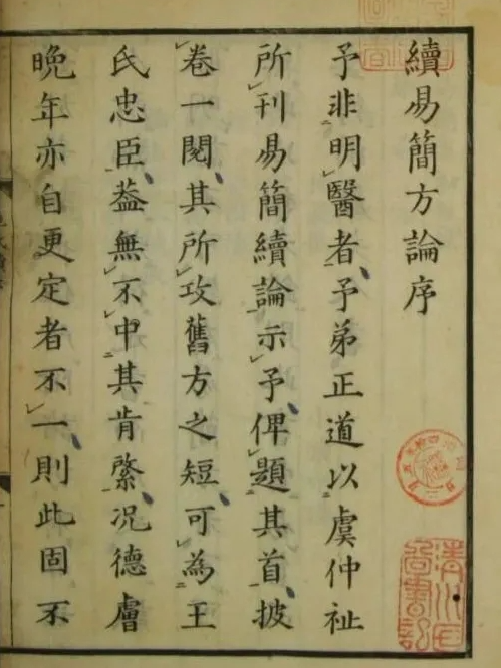 續易簡方論序
予非明醫者予弟正道以虞仲祉
所刊易簡續論示予俾題其首披
卷一閱其所攻舊方之短可為王
氏忠臣葢無不中其肯綮況德膚
晚年亦自更定者不一則此固不